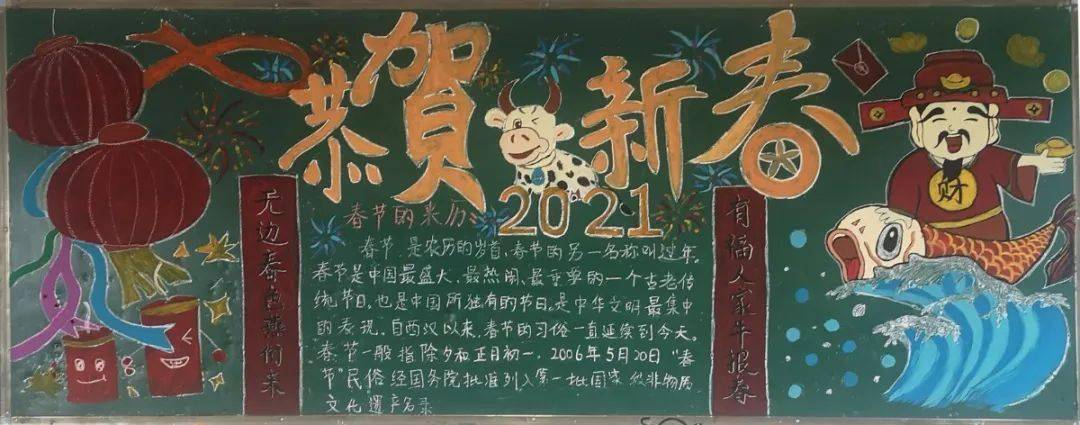 恭賀新春
2021
无边春色燕衔来
春节的来历:
春节,是农历的岁首,春节的另一名称叫过年,
春节是中国最盛大、最热闹、最重要的一个古老传
统节日,也是中国所独有的节日。是中华文明最集中
的表现。自西汉以来,春节的习俗一直延续到今天。
春节一般指除夕和正月初一,2006年5月20日“春
节”民俗经国务院批准列入第一批国家级非物质
文化遗产名录
有福人家牛报春
财